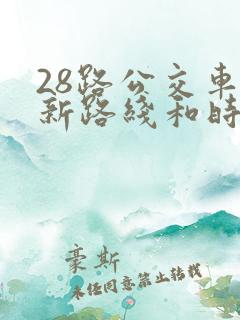 28路公交车
新路线和时
豪斯
未经同意禁止转载